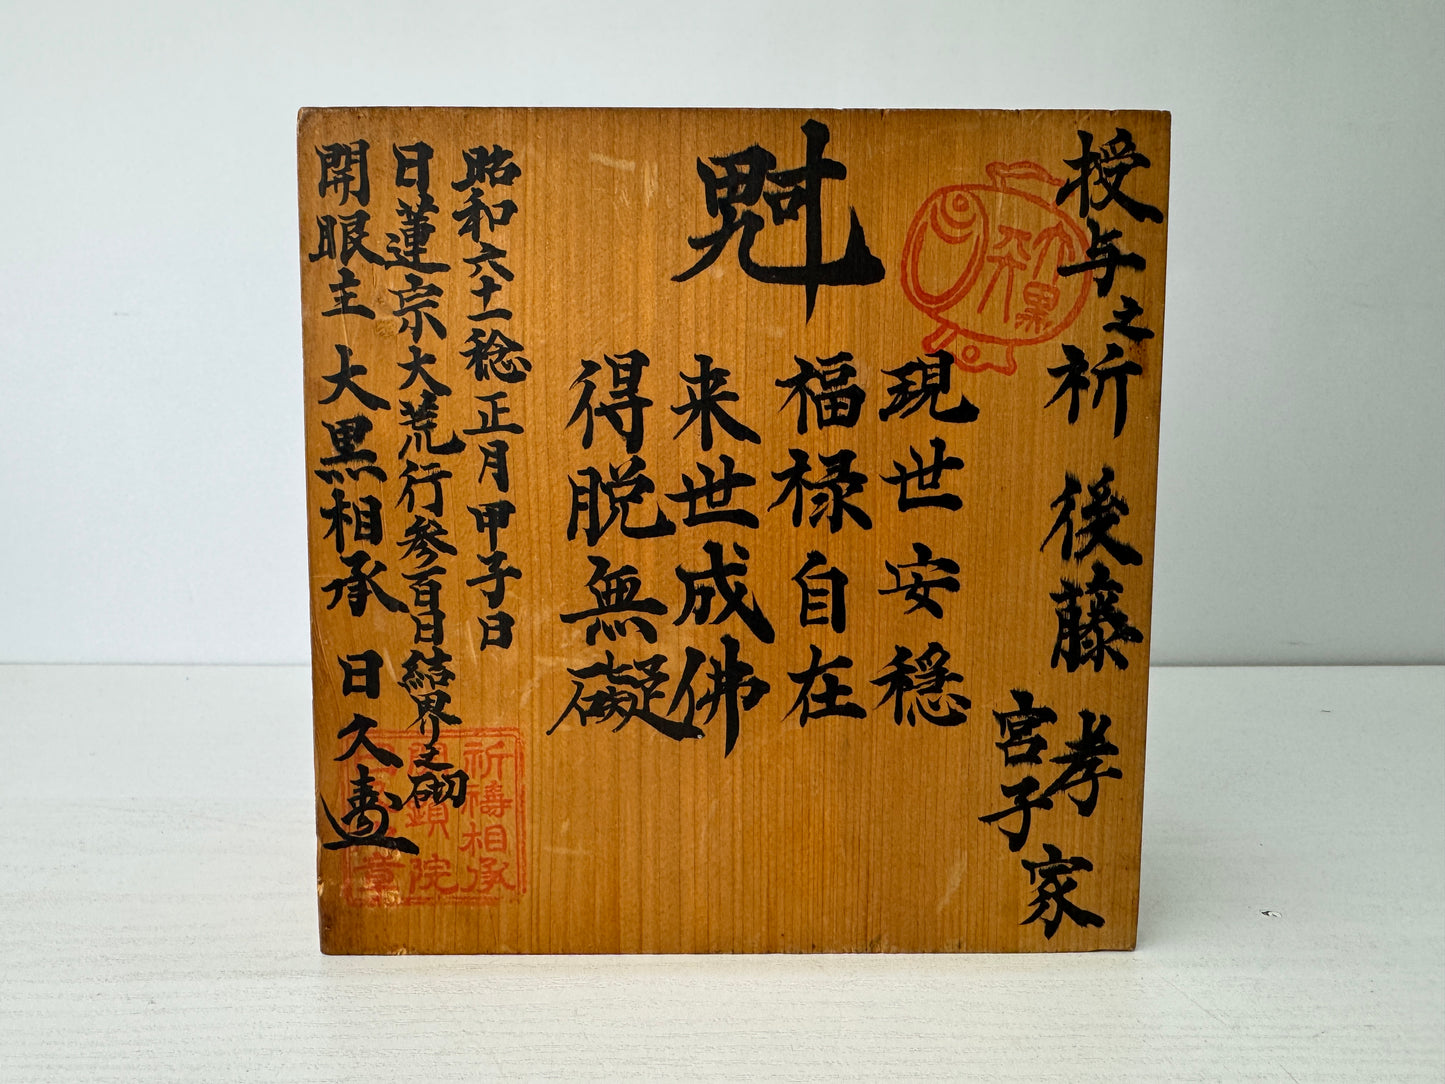 授与之
祈 後藤 孝
宮子
家
大黒
現世安穏
福禄自在
来世成佛
得脱無礙
昭和六十一稔正月甲子日
日蓮宗大荒行参百日結界之砌
開眼主 大黒相承 日久
祈禱相承
院
章